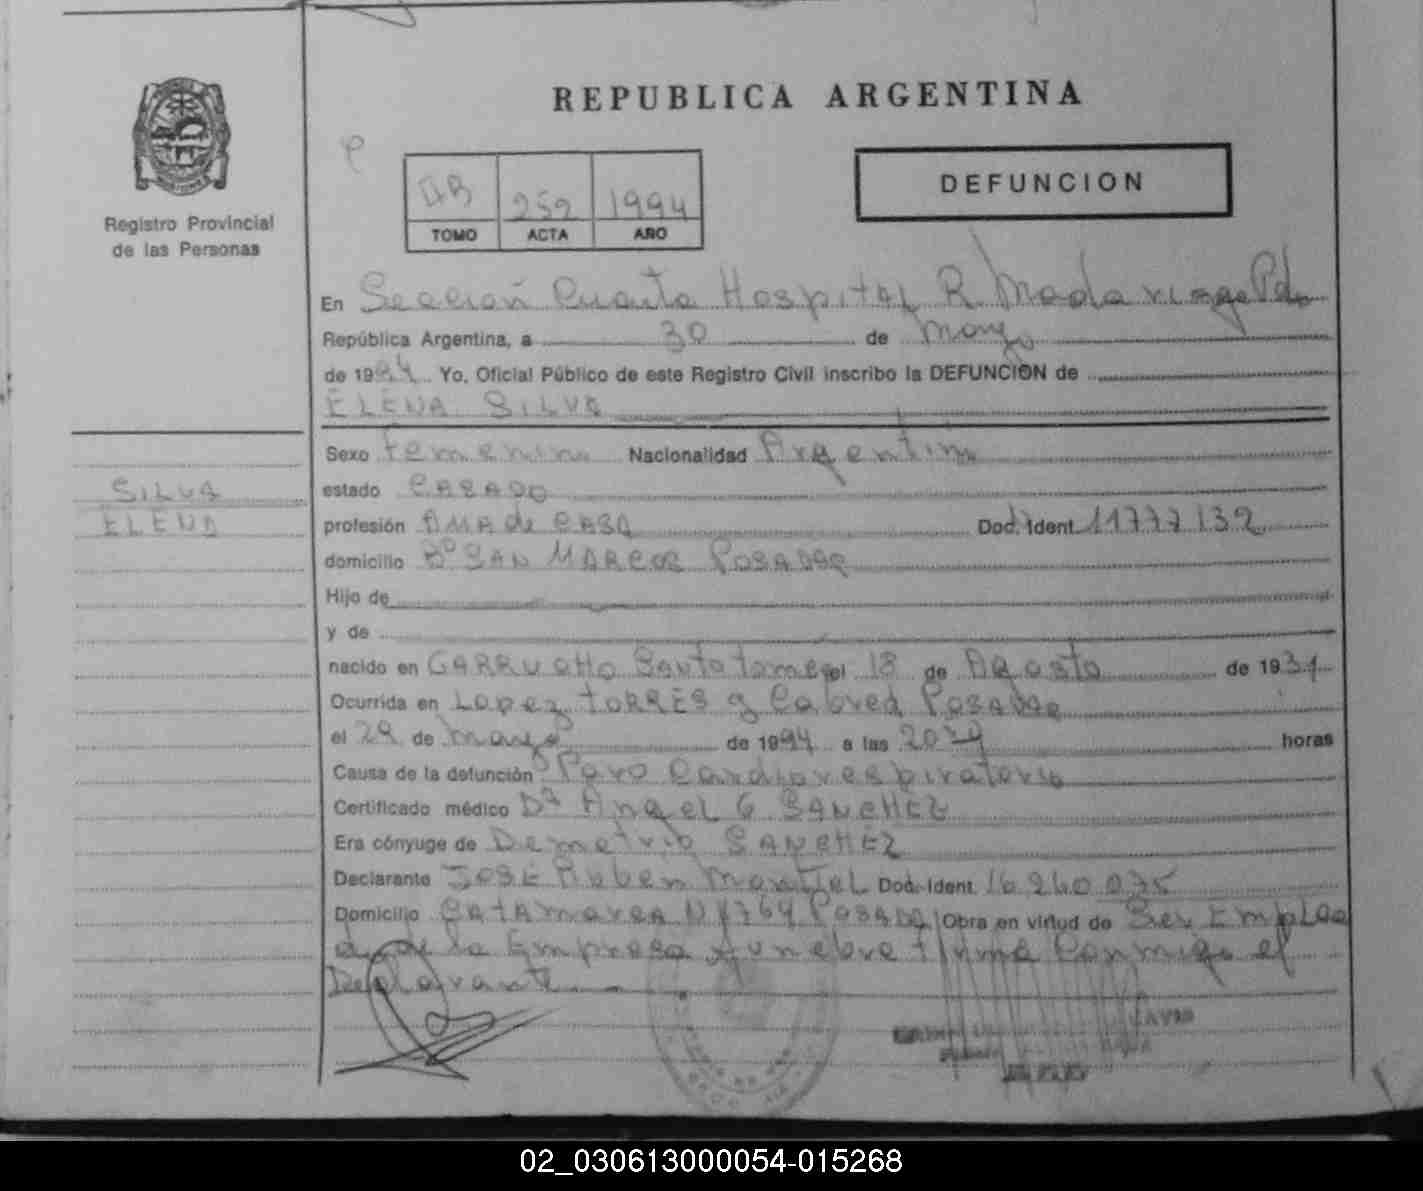 REPUBLICA ARGENTINA
DEFUNCION
Registro Provincial
de las Personas
252 1994
TOMO ACTA AÑO
En Sección Cuarta Hospital R. Madariaga Pdas
República Argentina, a 30 de mayo
de 1994 Yo, Oficial Público de este Registro Civil inscribo la DEFUNCION de
ELENA SILVA
Sexo Femenino Nacionalidad Argentina
SILVA
ELENA
estado CASADO
profesión AMA de CASA Doc. Ident. 11777132
domicilio Bº SAN MARCOS POSADAS
Hijo de
y de
nacido en GARRUCHO Santo tome el 18 de Agosto de 1931
Ocurrida en Lopez TORRES y Cabred POSADAS
el 29 de mayo de 1994 a las horas
Causa de la defunción Paro Cardiorespiratorio
Certificado médico Dr Angel G. SANCHEZ
Era cónyuge de Demetrio SANCHEZ
Declarante JOSÉ Ruben Montiel Doc. Ident. 16260035
Domicilio CATAMARCA Nº 1764 POSADAS Obra en virtud de Ser Emplea
do de la Empresa funebre firma Conmigo el
Declarante
02_030613000054-015268